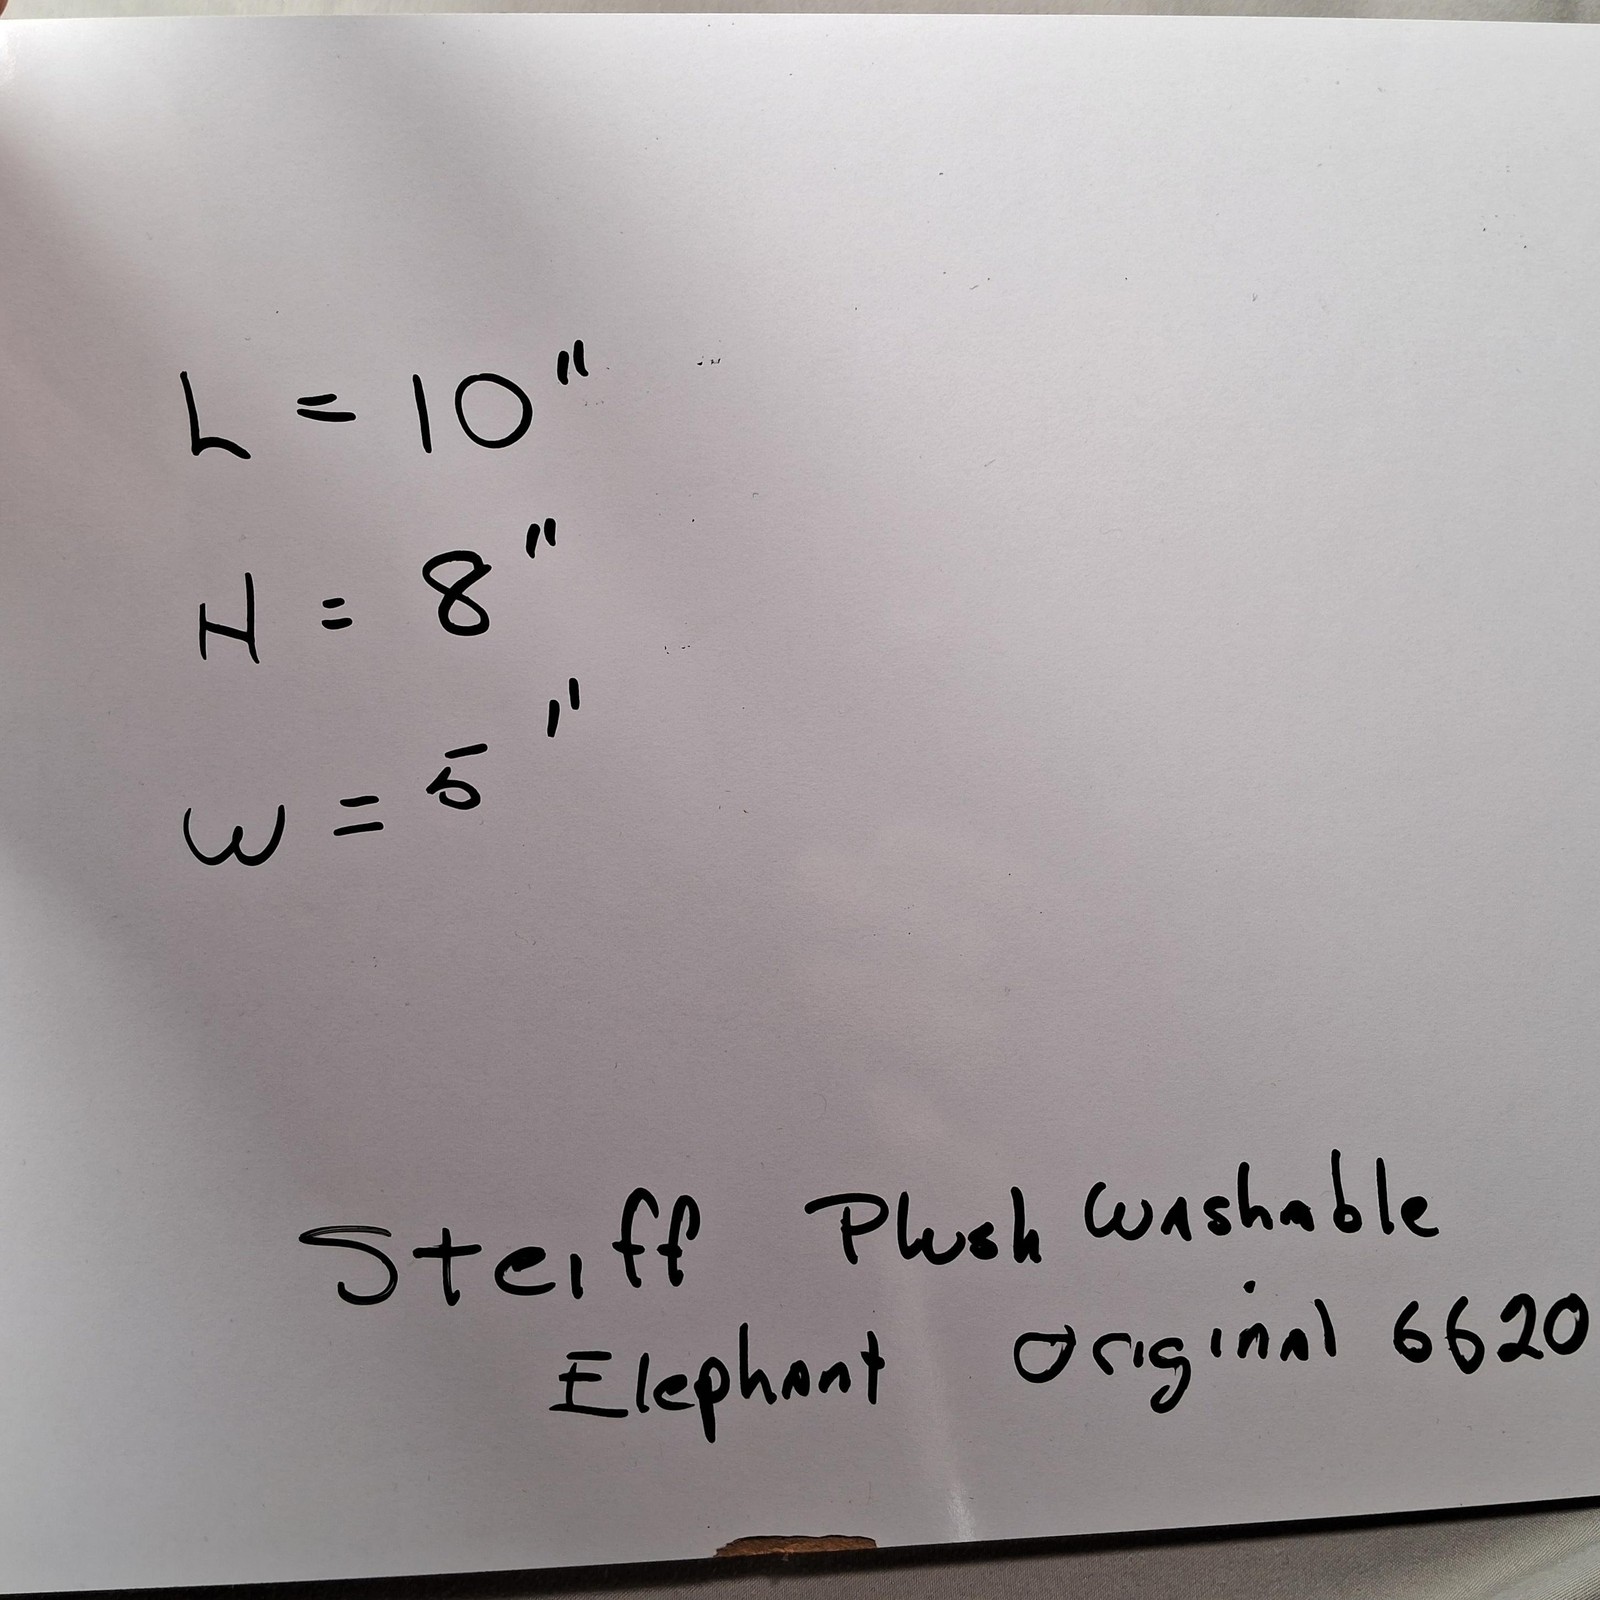 L = 10"
H = 8"
W = 5"
Steiff Plush Washable
Elephant Original 6620